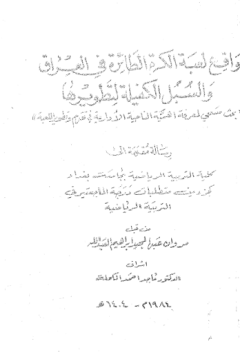 واقع لعبة الكرة الطائرة في العراق
والسبل الكفيلة لتطويرها
بحث مسحي لمعرفة أهمية الناحية الإدارية في تقدم وتطوير اللعبة
رسالة مقدمة الى
كلية التربية الرياضية بجامعة بغداد
كجزء من متطلبات درجة الماجستير في
التربية الرياضية
من قبل
مروان عبد المجيد ابراهيم
اشراف
الدكتور
١٩٨٤م - ١٤٠٤هـ